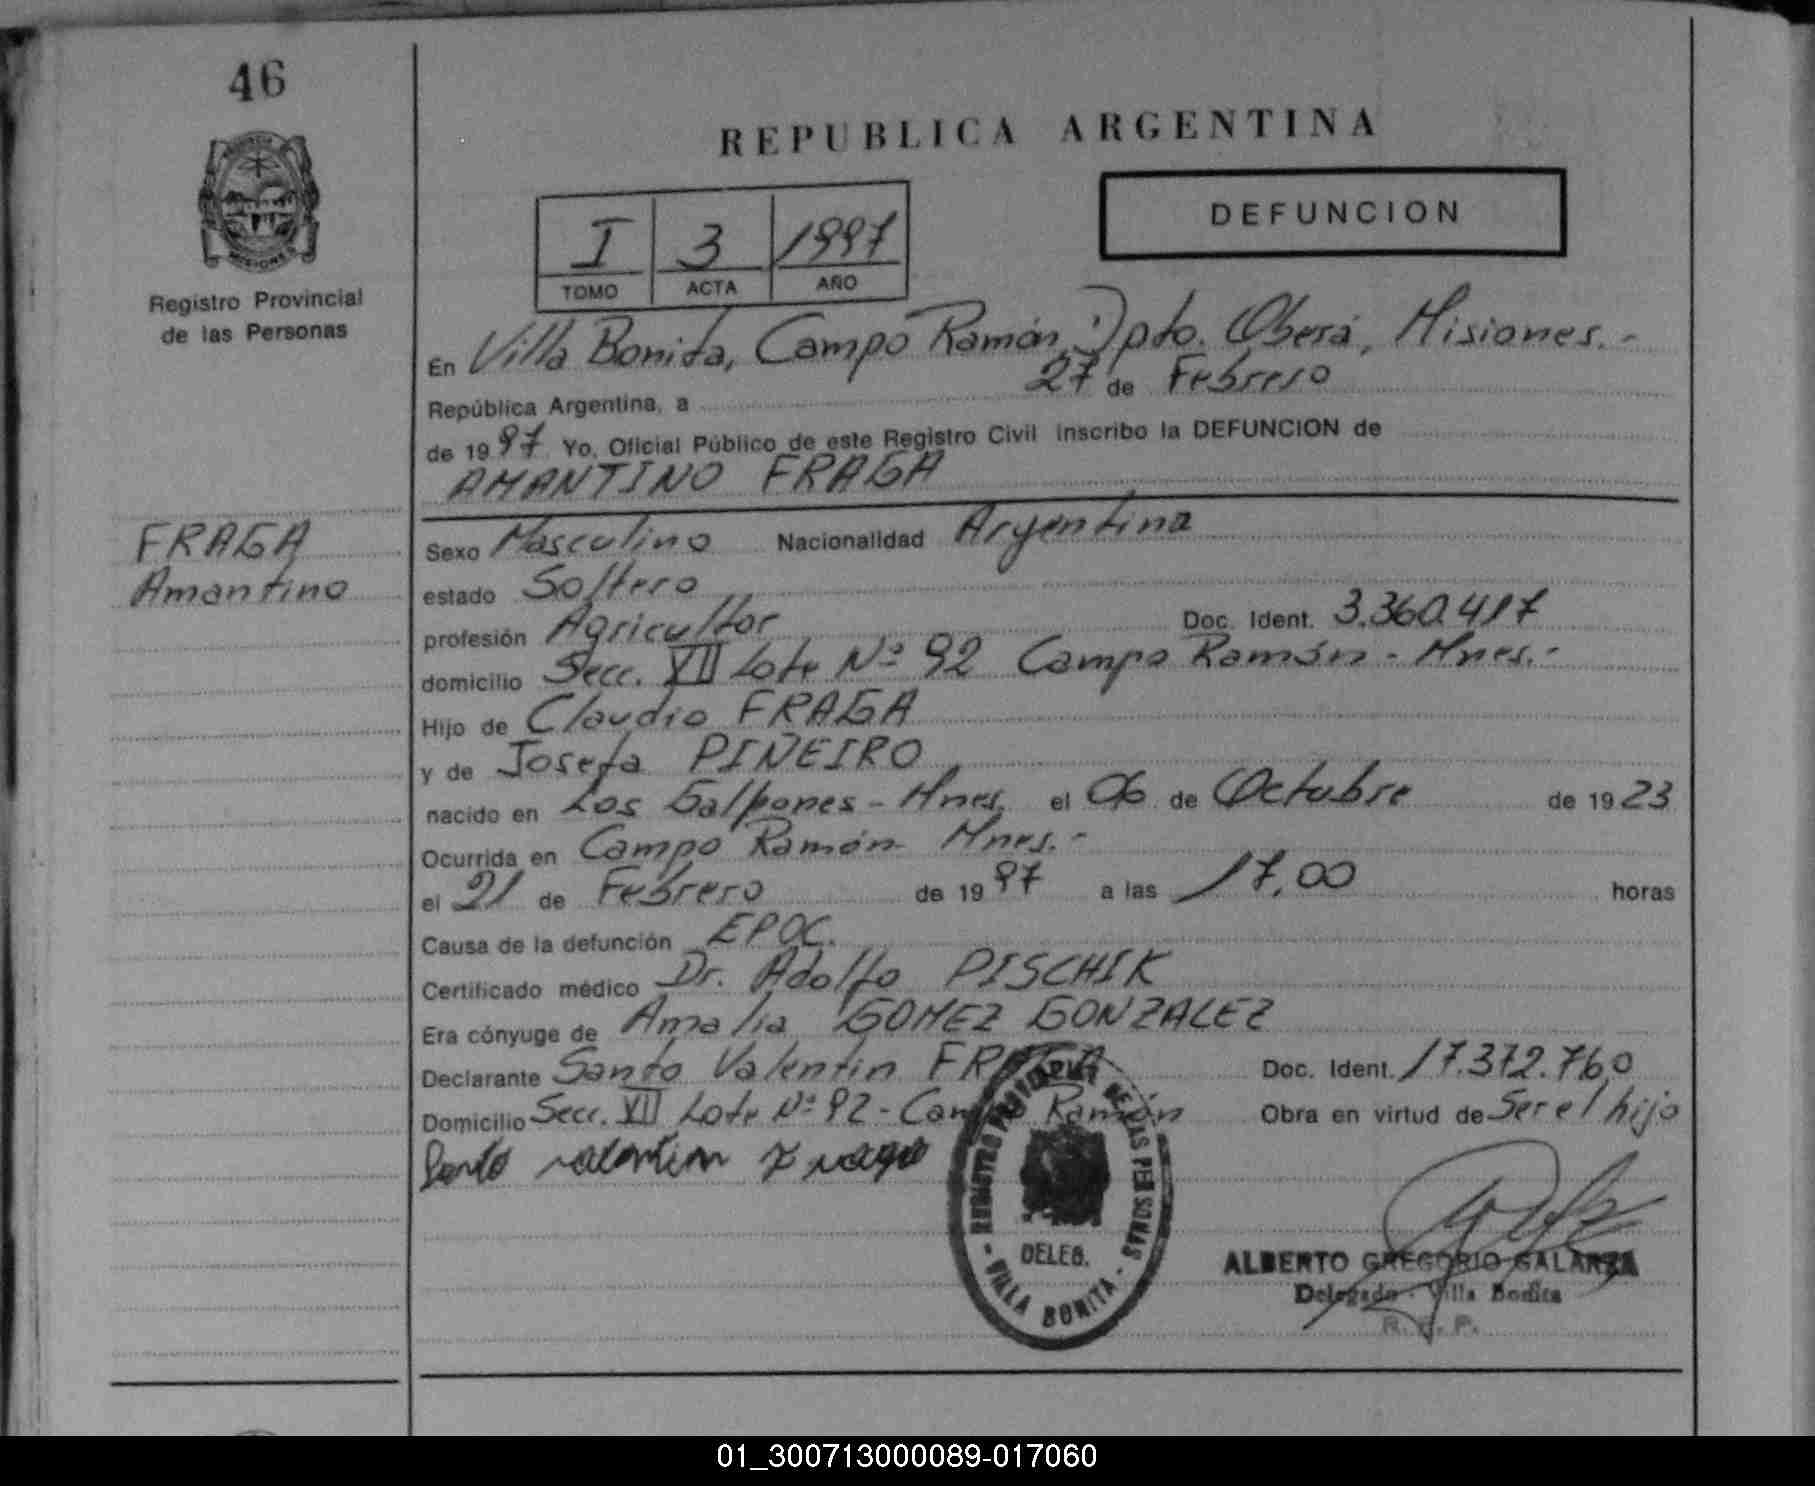 46
REPUBLICA ARGENTINA
MISIONES
Registro Provincial
de las Personas
I 3 1997
TOMO ACTA AÑO
DEFUNCION
En Villa Bonita, Campo Ramón Dpto. Oberá, Misiones.-
República Argentina, a 27 de Febrero
de 1997 Yo, Oficial Público de este Registro Civil inscribo la DEFUNCION de
AMANTINO FRAGA
FRAGA
Amantino
Sexo Masculino Nacionalidad Argentina
estado Soltero
profesión Agricultor Doc. Ident. 3.360.417
domicilio Secc. XII Lote Nº 92 Campo Ramón - Mnes.-
Hijo de Claudio FRAGA
y de Josefa PIÑEIRO
nacido en Los Galpones - Mnes. el 06 de Octubre de 1923
Ocurrida en Campo Ramón- Mnes.-
el 21 de Febrero de 1997 a las 17,00 horas
Causa de la defunción EPOC.
Certificado médico Dr. Adolfo PISCHIK
Era cónyuge de Amalia GOMEZ GONZALEZ
Declarante Santo Valentin FRAGA Doc. Ident. 17.372.760
Domicilio Secc. XII Lote Nº 92 - Campo Ramón Obra en virtud de Ser el hijo
Santo valentin
- REGISTRO PROVINCIAL DE LAS PERSONAS -
DELEG.
VILLA BONITA
ALBERTO GREGORIO GALARZA
Delegado - Villa Bonita
R. P. P.
01_300713000089-017060